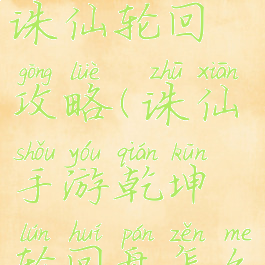 诛仙轮回
gōng lüè zhū xiān
攻略(诛仙
shǒu yóu qián kūn
手游乾坤
lún huí pán zěn me
轮回盘怎么